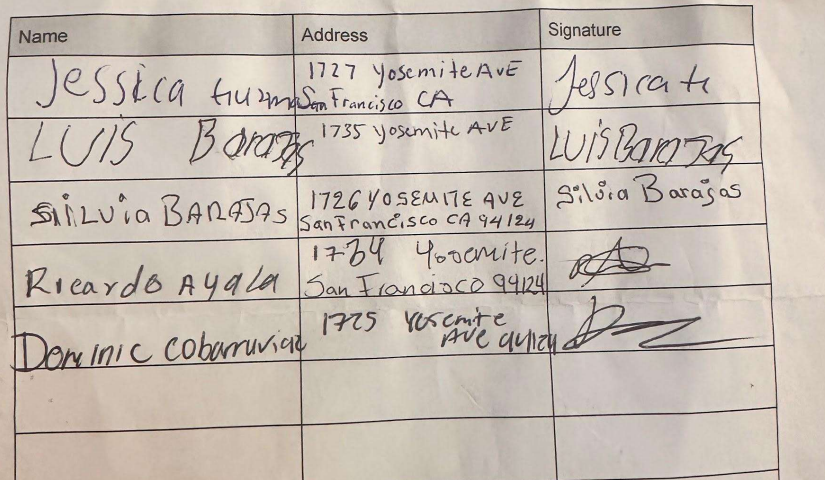 Name Address Signature
Jessica Guzman 1727 Yosemite AVE San Francisco CA Jessica G
LUIS Barajas 1735 Yosemite AVE LUIS Barajas
SILVia BARAJAS 1726 YOSEMITE AVE San Francisco CA 94124 Silvia Barajas
Ricardo Ayala 1734 Yosemite. San Francisco 94124
Dominic Cobarruviaz 1725 Yosemite AVE 94124